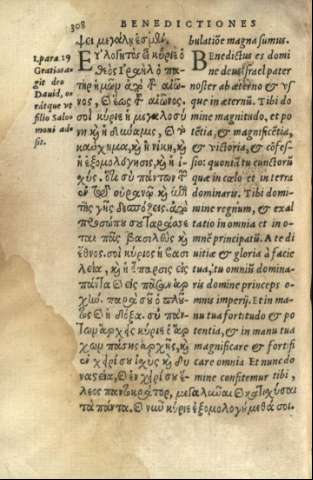 308 BENEDICTIONES
1. para 29
Gratiar
rie dro
Dauid, or
rátque vt
filio Salo
moni ad-
sit.
ψει μεγάλη ἐσμέν.
ΕΥλογητὸς εἶ κύριε ὁ
θεὸς Ἰσραὴλ ὁ πα
τὴρ ἡμῶν ἀπὸ τοῦ αἰῶ
νος, καὶ ἕως τοῦ αἰῶνος.
σοὶ κύριε ἡ μεγαλοσύ
νη καὶ ἡ δύναμις, καὶ τὸ
καύχημα, καὶ ἡ νίκη, καὶ
ἡ ἐξομολόγησις, καὶ ἡ ἰ-
χύς. ὅτι σὺ πάντων τῶν
ἐν τῷ οὐρανῷ καὶ ἐπὶ
τῆς γῆς δεσπόζεις. ἀπὸ
προσώπου σου ταράσσε
ται πᾶς βασιλεὺς καὶ
ἔθνος. σοὶ κύριος ἡ βασι
λεία, καὶ ἡ ἔπαρσις εἰς
πάντα καὶ εἰς πᾶσαν ἀρ
χήν. παρὰ σοῦ ὁ πλοῦ
τος καὶ ἡ δόξα. σὺ πάν-
των ἄρχης κύριε ὁ ἄρ
χων πάσης ἀρχῆς, καὶ
ἐν χειρί σου ἰσχὺς καὶ δυ
ναστεία, καὶ ἐν χειρί σου ἔ-
λεος παντοκράτορ, μεγαλῶσαι καὶ κατισχύσαι
τὰ πάντα. καὶ νῦν κύριε ἐξομολογούμεθά σοι.
bulatióe magna sumus.
BEnedictus es domi
ne deus Israel pater
noster ab aeterno & vs
que in aeternū. Tibi do
mine magnitudo, et po
tētia, & magnificētia,
& victoria, & cōfes-
sio: quoniā tu cunctorū
quae in coelo et in terra
dominaris. Tibi domi-
mine regnum, & exal
tatio in omnia et in o-
mnē principatū. A te di
uitiae & gloria à facie
tua, tu omniū domina-
ris domine princeps o-
mnis imperij. Et in ma-
nu tua fortitudo & po
tentia, & in manu tua
magnificare & fortifi
care omnia. Et nunc do
mine confitemur tibi,